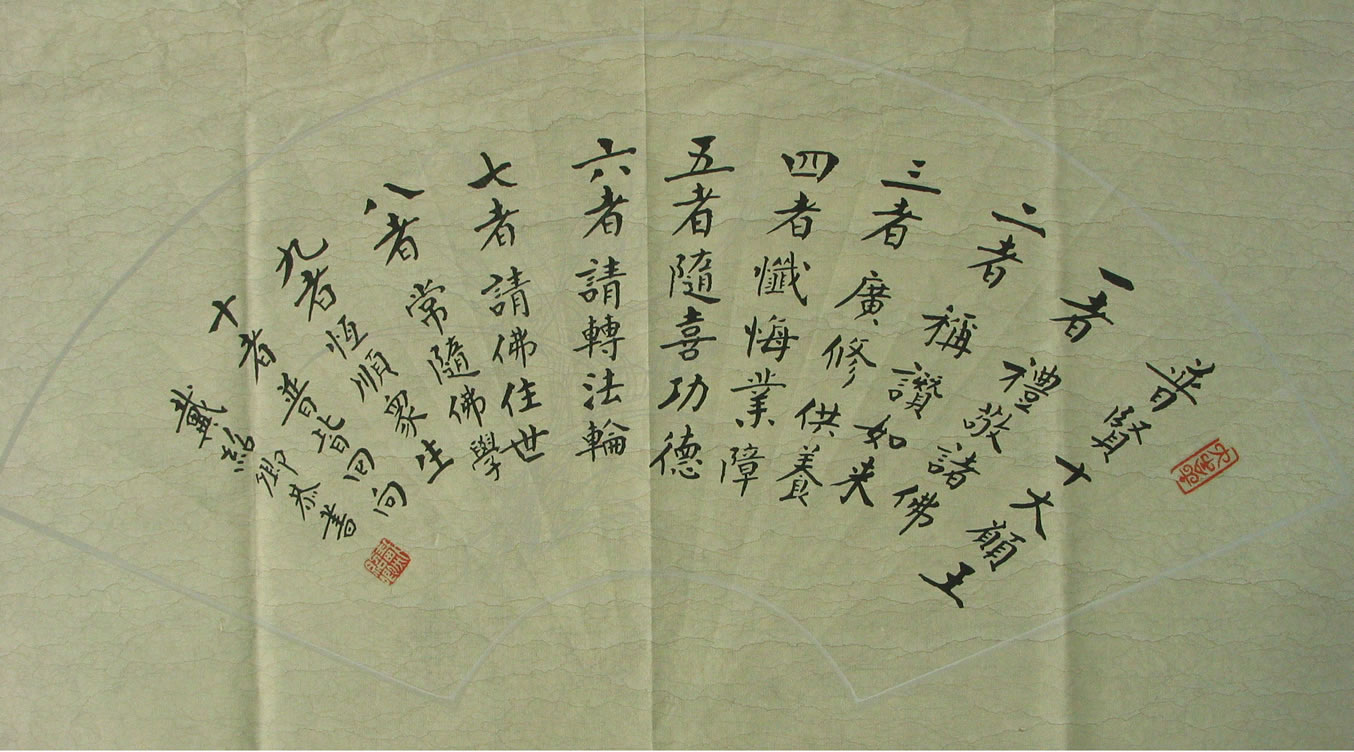 普賢十大願王
一者禮敬諸佛
二者稱讚如来
三者廣修供養
四者懺悔業障
五者隨喜功德
六者請轉法輪
七者請佛住世
八者常隨佛學
九者恆順衆生
十者普皆回向
戴紹卿恭書